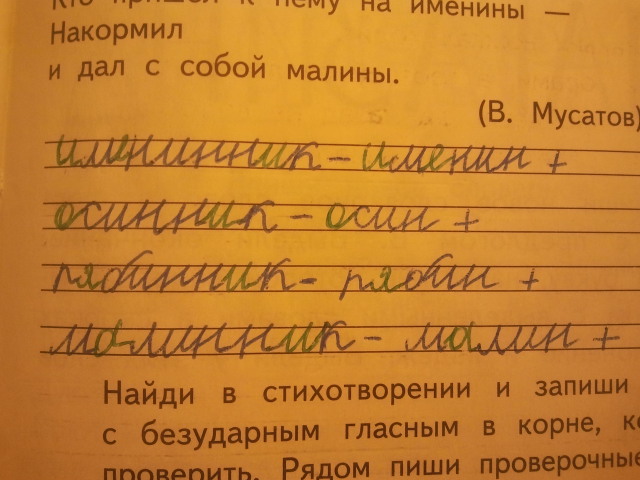 Кто пришёл к нему на именины —
Накормил
и дал с собой малины.
(В. Мусатов)
именинник – именин +
осинник – осин +
рябинник – рябин +
малинник – малин +
Найди в стихотворении и запиши
с безударным гласным в корне,
проверить. Рядом пиши проверочные